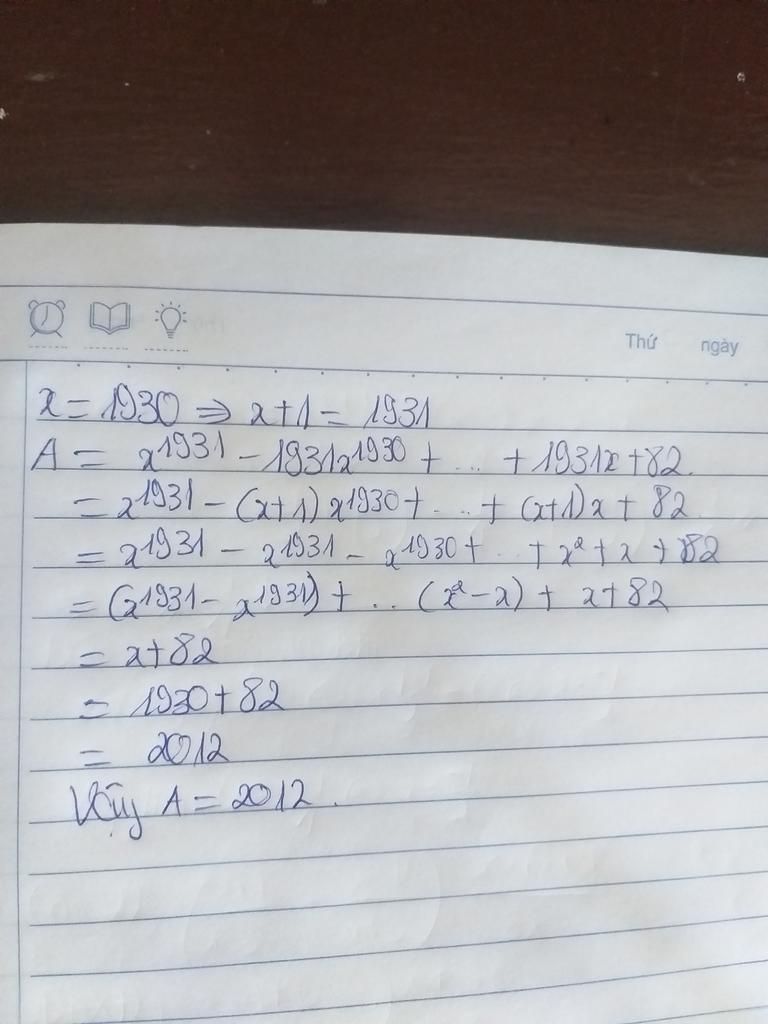 Thứ ngày
x = 1930 => x+1 = 1931
A = x^1931 - 1931x^1930 + ... + 1931x + 82.
= x^1931 - (x+1) x^1930 + ... + (x+1)x + 82
= x^1931 - x^1931 - x^1930 + ... + x² + x + 82
= (x^1931 - x^1931) + .. (x² - x) + x + 82
= x + 82
= 1930 + 82
= 2012
Vậy A = 2012.